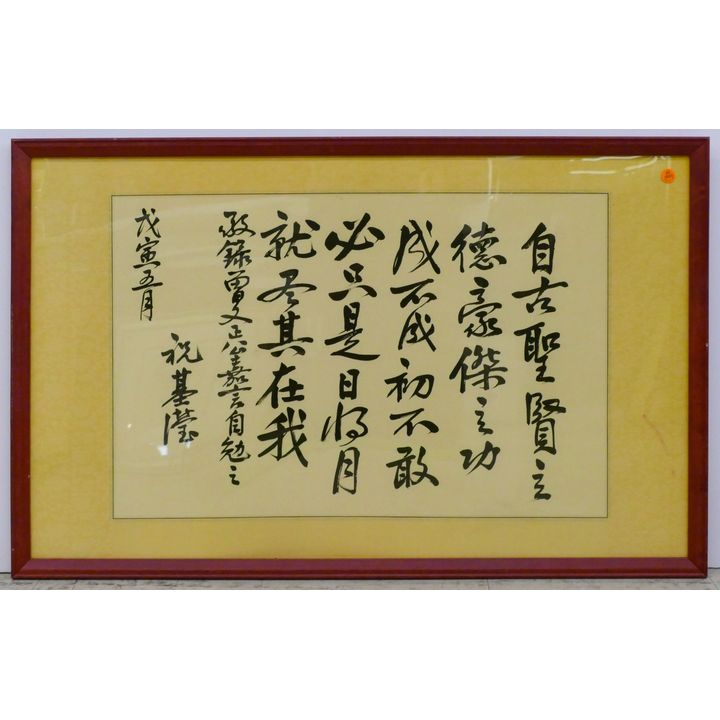 自古聖賢之
德豪傑之功
成不成初不敢
必只是日將月
就尽其在我
敬錄曾文正公嘉言自勉之
戊寅五月
祝基瀅